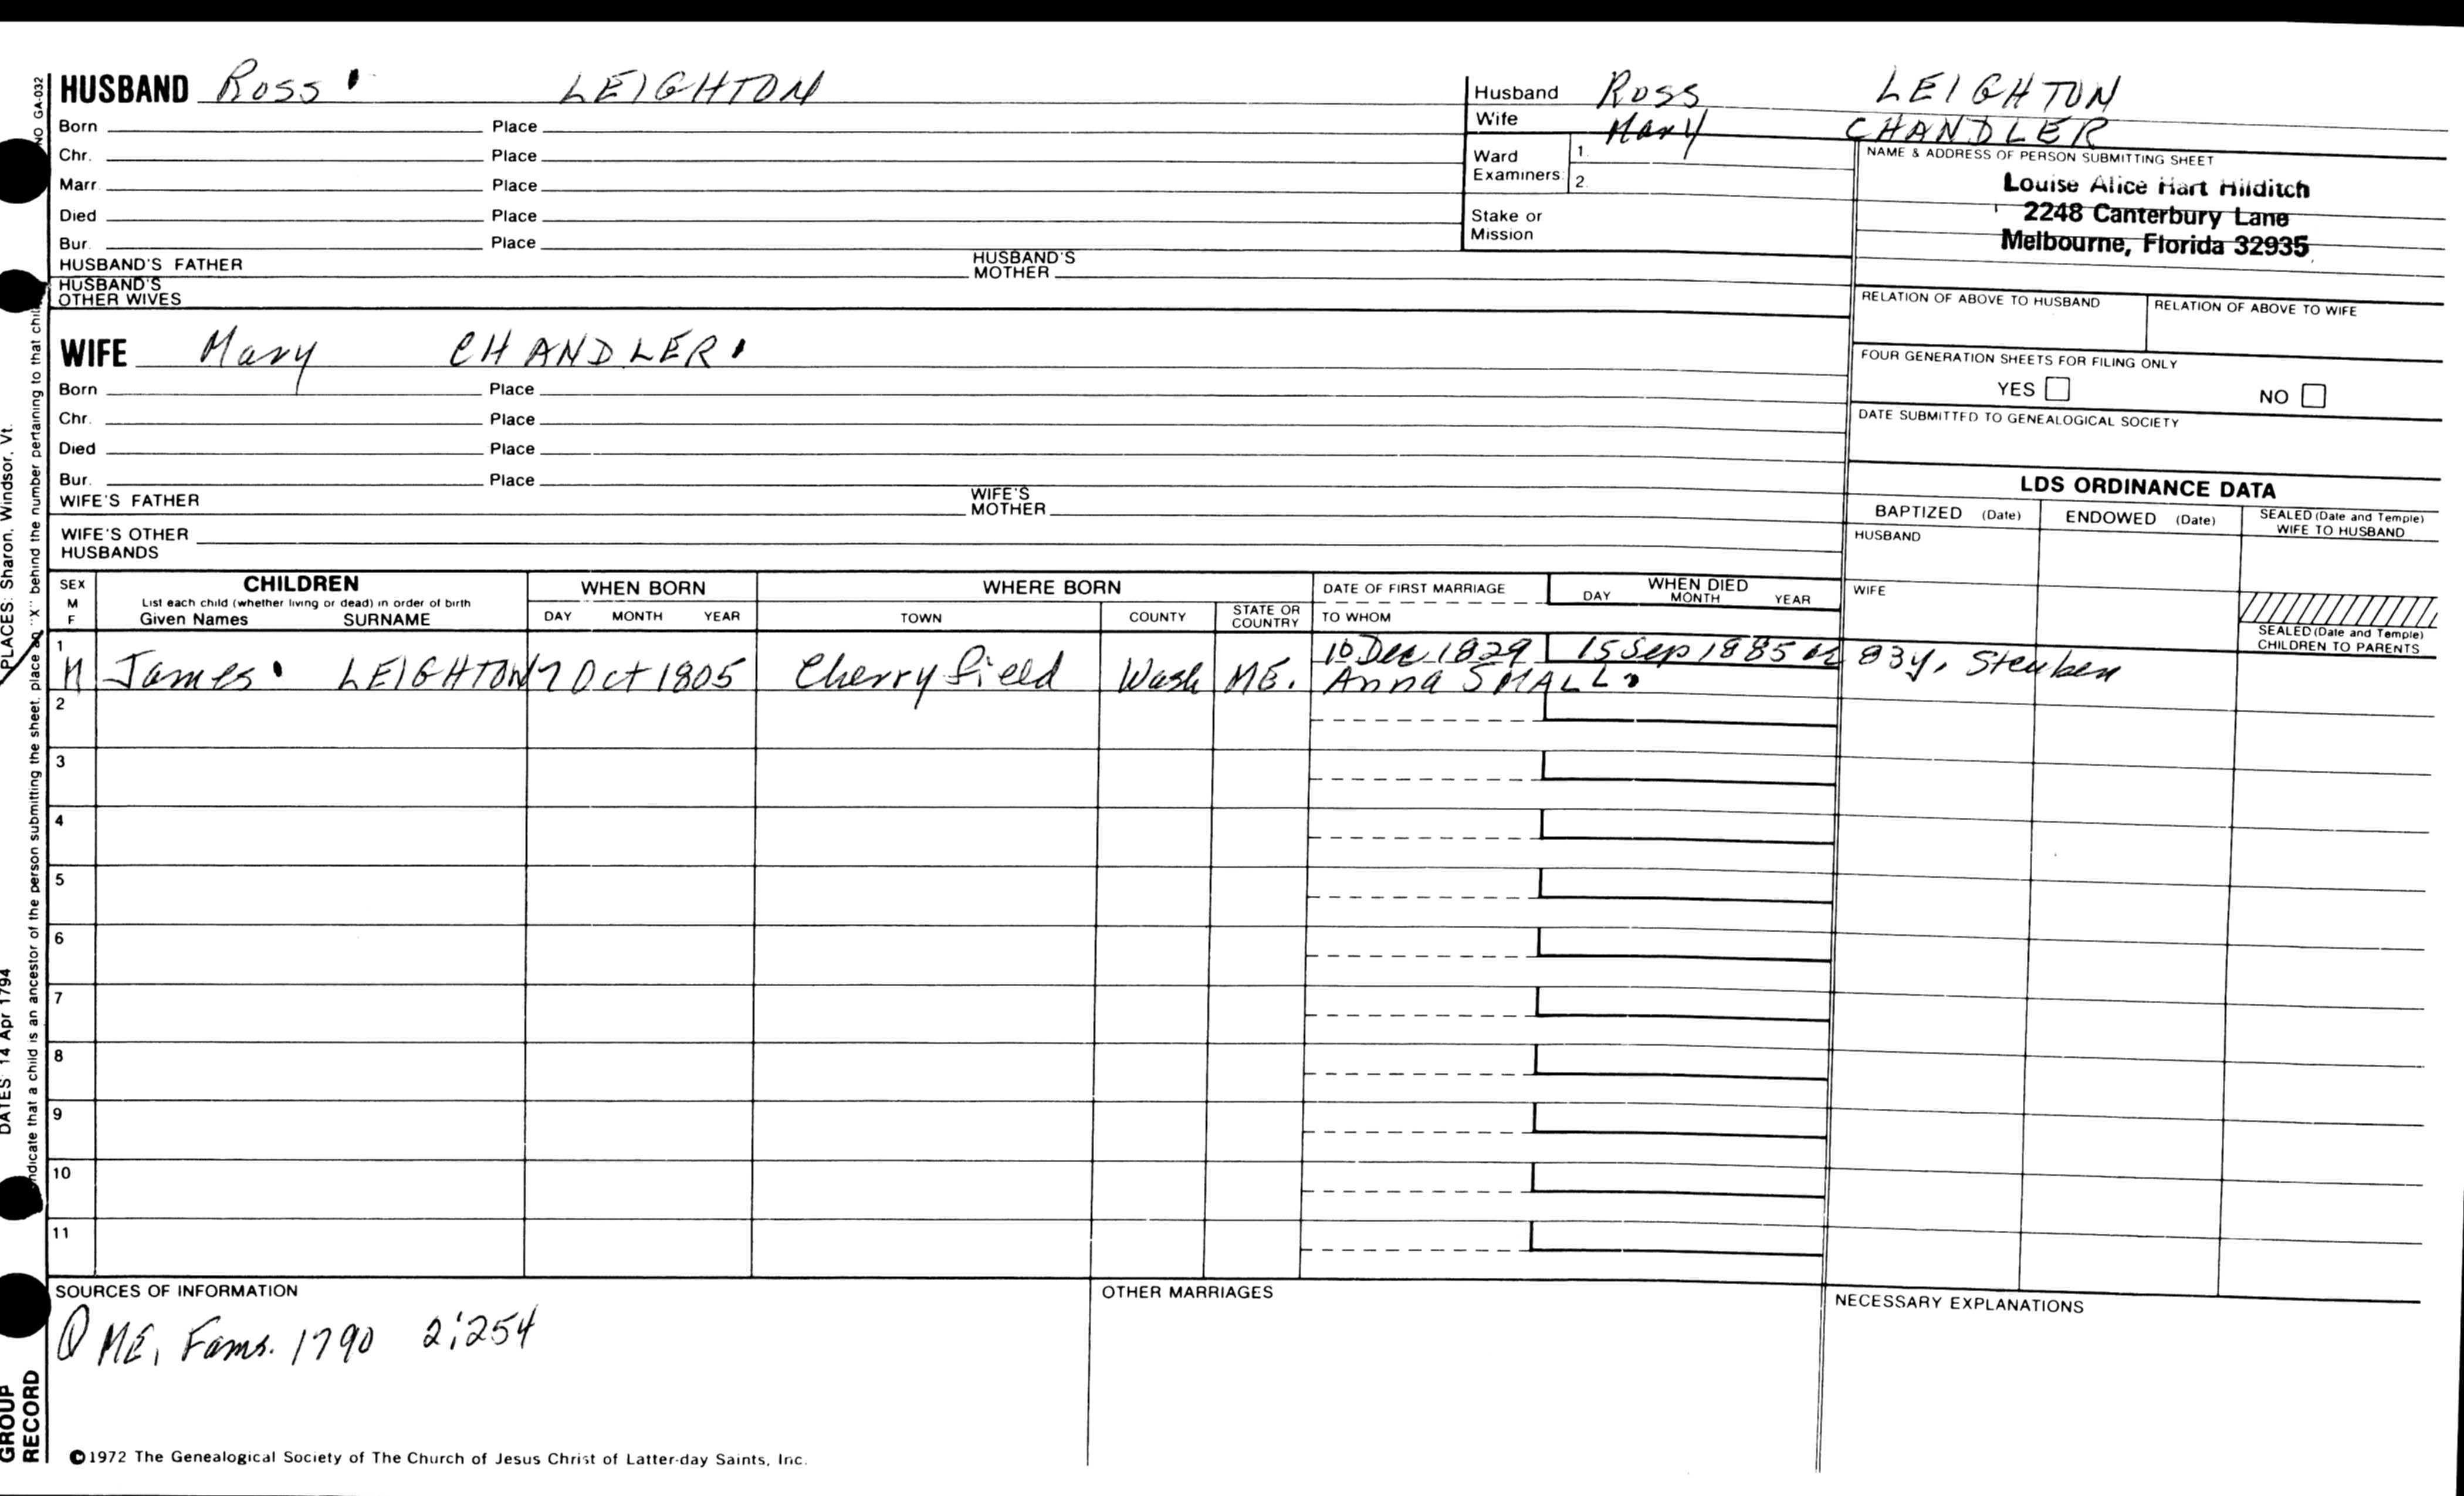 HUSBAND Ross LEIGHTON
Born Place
Chr. Place
Marr. Place
Died Place
Bur. Place
HUSBAND'S FATHER HUSBAND'S MOTHER
HUSBAND'S OTHER WIVES
Husband Ross LEIGHTON
Wife Mary CHANDLER
Ward Examiners: 1. 2.
Stake or Mission
NAME & ADDRESS OF PERSON SUBMITTING SHEET
Louise Alice Hart Hilditch
2248 Canterbury Lane
Melbourne, Florida 32935
RELATION OF ABOVE TO HUSBAND RELATION OF ABOVE TO WIFE
FOUR GENERATION SHEETS FOR FILING ONLY
YES NO
DATE SUBMITTED TO GENEALOGICAL SOCIETY
WIFE Mary CHANDLER
Born Place
Chr. Place
Died Place
Bur. Place
WIFE'S FATHER WIFE'S MOTHER
WIFE'S OTHER HUSBANDS
LDS ORDINANCE DATA
BAPTIZED (Date) ENDOWED (Date) SEALED (Date and Temple) WIFE TO HUSBAND
HUSBAND
WIFE
SEALED (Date and Temple) CHILDREN TO PARENTS
SEX M F
CHILDREN
List each child (whether living or dead) in order of birth
Given Names SURNAME
WHEN BORN
DAY MONTH YEAR
WHERE BORN
TOWN COUNTY STATE OR COUNTRY
DATE OF FIRST MARRIAGE
TO WHOM
WHEN DIED
DAY MONTH YEAR
1 M James LEIGHTON 7 Oct 1805 Cherryfield Wash ME. 10 Dec 1829 15 Sep 1885 83y, Steuben
Anna SMALL
2
3
4
5
6
7
8
9
10
11
SOURCES OF INFORMATION
ME, Fams. 1790 2:254
OTHER MARRIAGES
NECESSARY EXPLANATIONS
©1972 The Genealogical Society of The Church of Jesus Christ of Latter-day Saints, Inc.
NO GA-032
PLACES: Sharon, Windsor, Vt.
DATES: 14 Apr 1794
indicate that a child is an ancestor of the person submitting the sheet, place an "X" behind the number pertaining to that
GROUP
RECORD